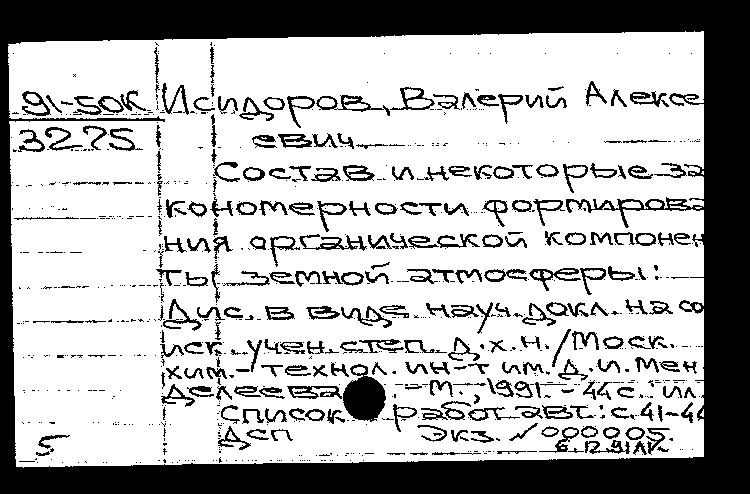 91-50К Исидоров, Валерий Алексе
3275 евич
Состав и некоторые за
кономерности формирова
ния органической компонен
ты земной атмосферы:
Дис. в виде науч. докл. на со
иск. учен. степ. д.х.н. / Моск.
хим.-технол. ин-т им. Д.И. Мен
делеева. - М., 1991. - 44 с.: ил.
Список работ авт.: с. 41-44
ДСП Экз. № 000005.
5 6.12.91